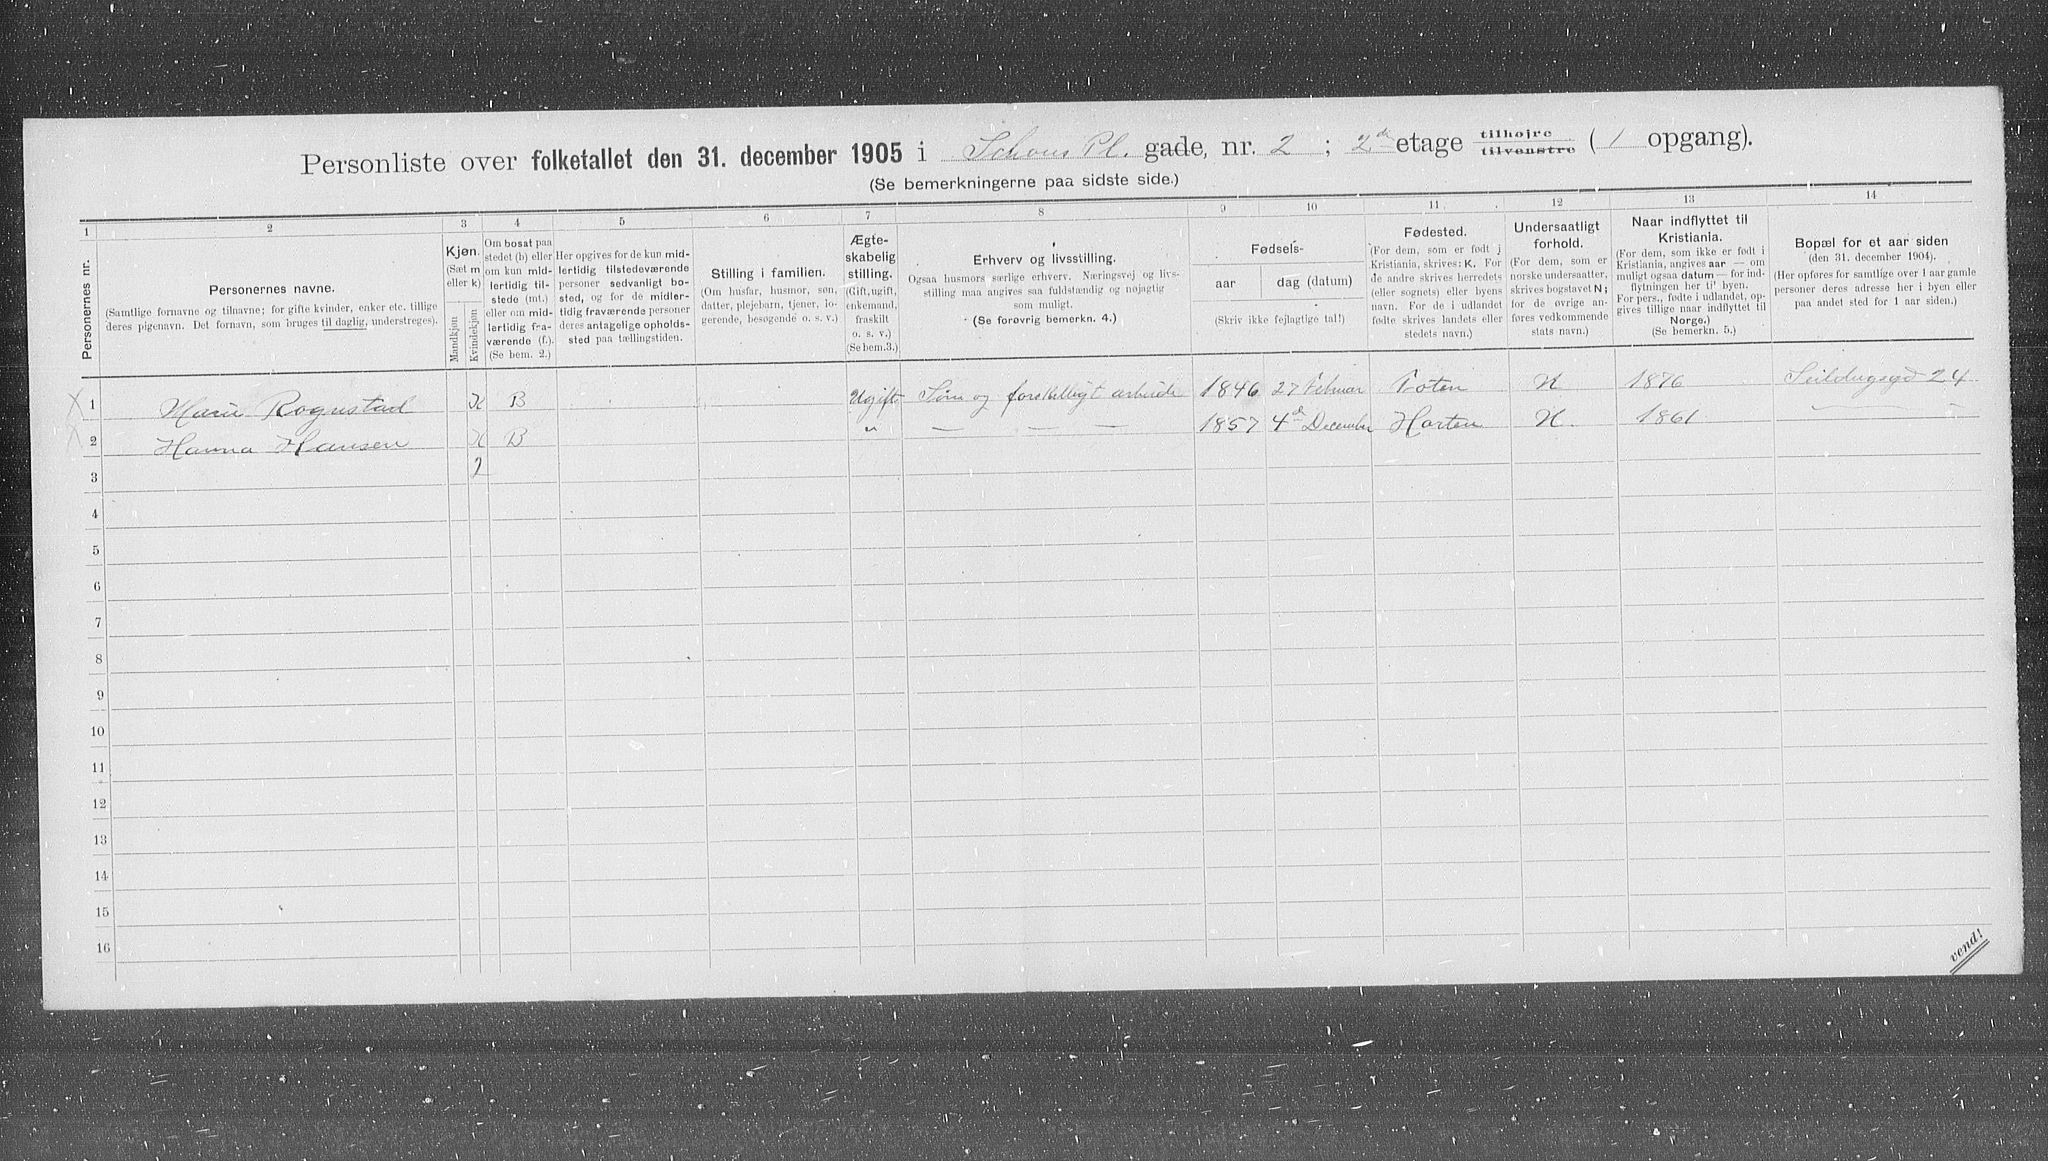 Personliste over folketallet den 31. december 1905 i Schous Pl. gade, nr. 2 ; 2de etage tilhøjre tilvenstre ( 1 opgang).
(Se bemerkningerne paa sidste side.)
1 2 3 4 5 6 7 8 9 10 11 12 13 14
Personernes nr.
Personernes navne.
(Samtlige fornavne og tilnavne; for gifte kvinder, enker etc. tillige
deres pigenavn. Det fornavn, som bruges til daglig, understreges).
Kjøn.
(Sæt m
eller k)
Mandkjøn
Kvindekjøn
Om bosat paa
stedet (b) eller
om kun mid-
lertidig til-
stede (mt.)
eller om mid-
lertidig fra-
værende (f.).
(Se bem. 2.)
Her opgives for de kun mid-
lertidig tilstedeværende
personer sedvanligt bo-
sted, og for de midler-
tidig fraværende personer
deres antagelige opholds-
sted paa tællingstiden.
Stilling i familien.
(Om husfar, husmor, søn,
datter, plejebarn, tjener, lo-
gerende, besøgende o. s. v.)
Ægte-
skabelig
stilling.
(Gift, ugift,
enkemand,
fraskilt
o. s. v.)
(Se bem.3.)
Erhverv og livsstilling.
Ogsaa husmors særlige erhverv. Næringsvej og livs-
stilling maa angives saa fuldstændig og nøjagtig
som muligt.
(Se forøvrig bemerkn. 4.)
Fødsels-
aar
dag (datum)
(Skriv ikke fejlagtige tal!)
Fødested.
(For dem, som er født i
Kristiania, skrives: K. For
de andre skrives herredets
(eller sognets) eller byens
navn. For de i udlandet
fødte skrives landets eller
stedets navn.)
Undersaatligt
forhold.
(For dem, som er
norske undersaatter,
skrives bogstavet N;
for de øvrige an-
føres vedkommende
stats navn.)
Naar indflyttet til
Kristiania.
(For dem, som ikke er født i
Kristiania, angives aar — om
muligt ogsaa datum — for ind-
flytningen her til byen.
For pers., fødte i udlandet, op-
gives tillige naar indflyttet til
Norge.)
(Se bemerkn. 5.)
Bopæl for et aar siden
(den 31. december 1904).
(Her opføres for samtlige over 1 aar gamle
personer deres adresse her i byen eller
paa andet sted for 1 aar siden.)
1 Marie Rognstad K B Ugift Søm og forskelligt arbeide 1846 27 Februar Toten N 1876 Seildugsgd 24
2 Hanna Hansen K B " — — — 1857 4de December Horten N. 1861 — —
3 2
4
5
6
7
8
9
10
11
12
13
14
15
16
vend!